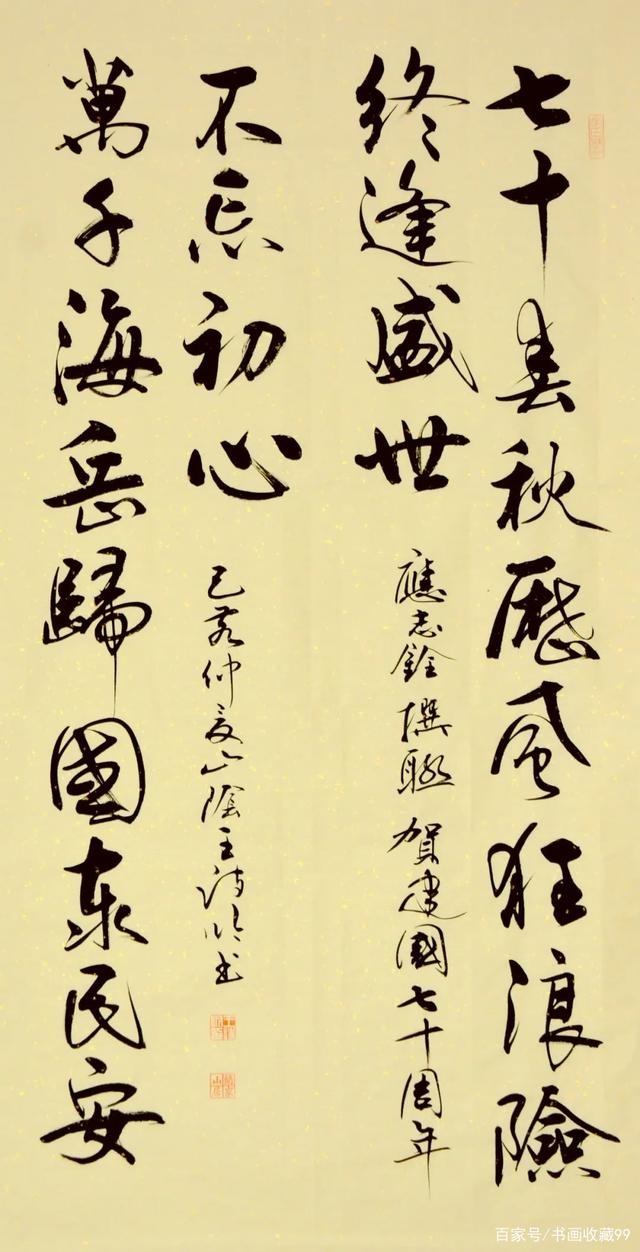 七十春秋歷風狂浪險
終逢盛世
應志銓撰聯 賀建國七十周年
萬千海岳歸國泰民安
不忘初心
己亥仲夏山陰王書
百家号/书画收藏99